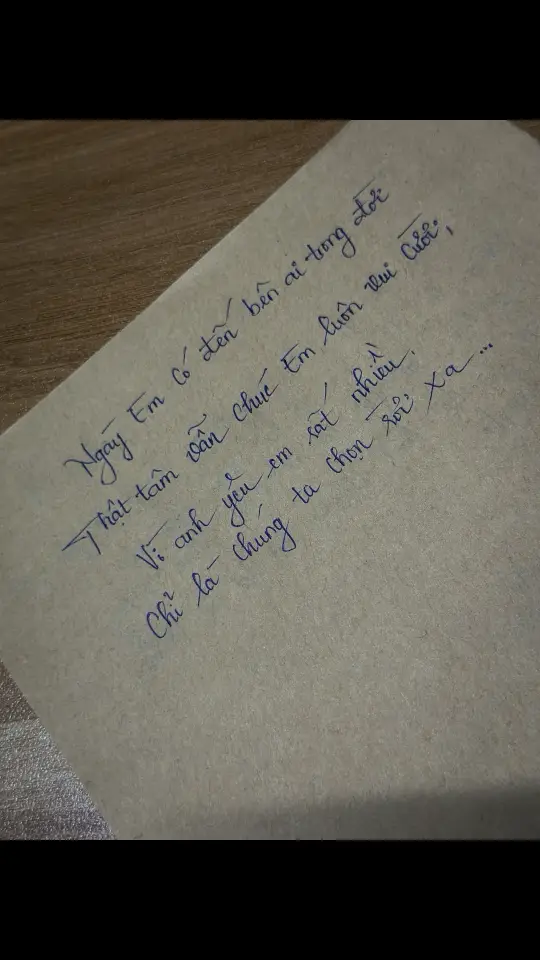 Ngày Em có đến bên ai trong đời
Thật tâm vẫn chúc Em luôn vui cười,
Vì anh yêu em rất nhiều.
Chỉ là chúng ta chọn rời xa ...